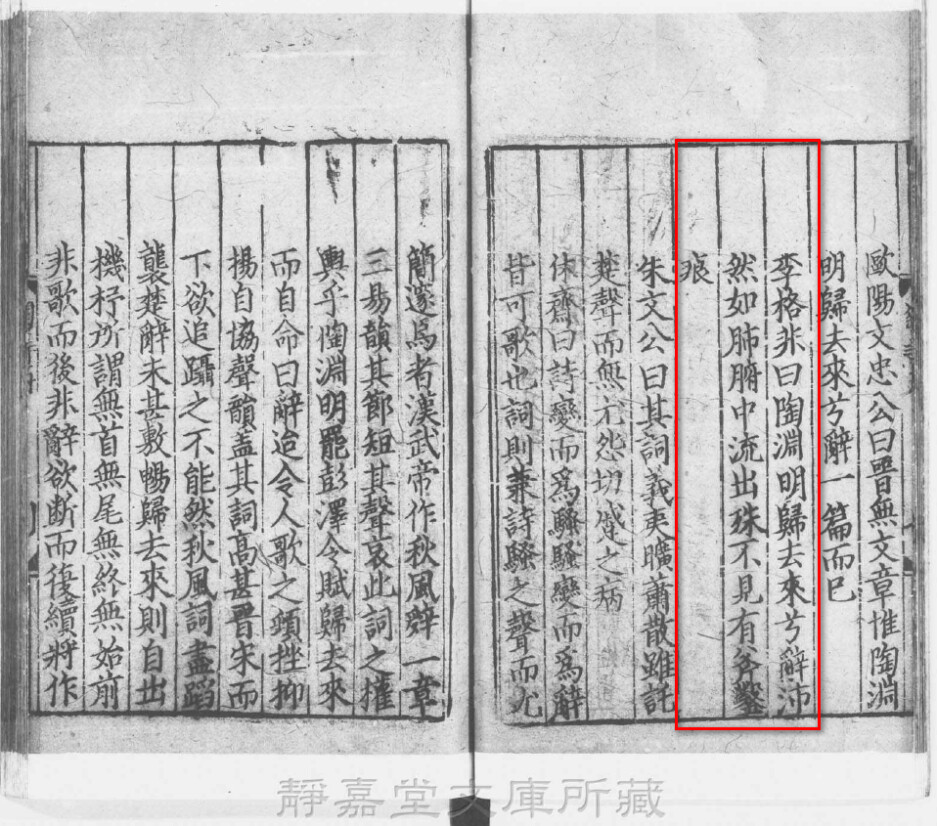 歐陽文忠公曰晉無文章惟陶淵
明歸去來兮辭一篇而已
李格非曰陶淵明歸去來兮辭沛
然如肺腑中流出殊不見有斧鑿
痕
朱文公曰其詞義夷曠蕭散雖託
楚聲而無尤怨切蹙之病
休齋曰詩變而爲騷騷變而爲辭
皆可歌也詞則兼詩騷之聲而尤
簡邃焉者漢武帝作秋風辭一章
三易韻其節短其聲哀此詞之權
輿乎陶淵明罷彭澤令賦歸去來
而自命曰辭迨令人歌之頓挫抑
揚自協聲韻盖其詞高甚晋宋而
下欲追躡之不能然秋風詞盡蹈
襲楚辭未甚敷暢歸去來則自出
機杼所謂無首無尾無終無始前
非歌而後非辭欲断而復續將作
靜嘉堂文庫所藏